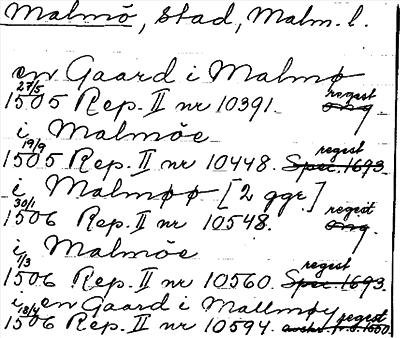 Malmö, stad, Malm. l.
en Gaard i Malmø
27/5 1505 Rep. II nr 10391. regest orig.
i Malmöe
19/9 1505 Rep. II nr 10448. regest Spec. 1693
i Malmøø [2 ggr]
30/1 1506 Rep. II nr 10548. regest orig.
i Malmöe
1/3 1506 Rep. II nr 10560. regest Spec. 1693.
i en Gaard i Mallmøy
18/4 1506 Rep. II nr 10594. regest